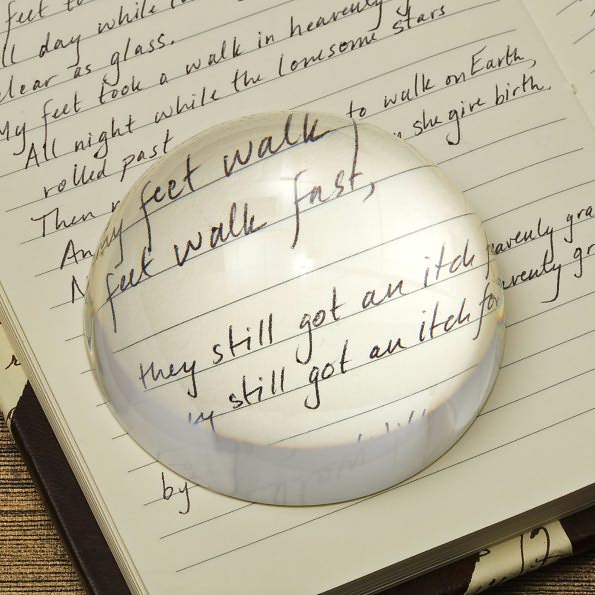 feet to
ll day while
clear as glass.
My feet took a walk in heavenly
All night while the lonesome stars
rolled past
to walk on Earth,
Then
she give birth.
An my feet walk
feet walk fast,
they still got an itch
still got an itch for
by